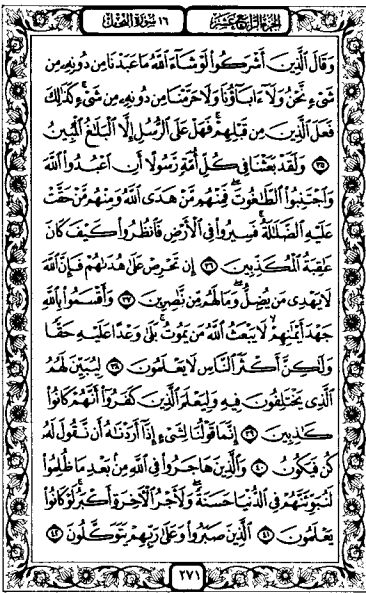 الجزء الرابع عشر ١٦ سورة النحل
وَقَالَ ٱلَّذِينَ أَشْرَكُوا۟ لَوْ شَآءَ ٱللَّهُ مَا عَبَدْنَا مِن دُونِهِۦ مِن
شَىْءٍ نَّحْنُ وَلَآ ءَابَآؤُنَا وَلَا حَرَّمْنَا مِن دُونِهِۦ مِن شَىْءٍ ۚ كَذَٰلِكَ
فَعَلَ ٱلَّذِينَ مِن قَبْلِهِمْ ۚ فَهَلْ عَلَى ٱلرُّسُلِ إِلَّا ٱلْبَلَٰغُ ٱلْمُبِينُ
٣٥ وَلَقَدْ بَعَثْنَا فِى كُلِّ أُمَّةٍ رَّسُولًا أَنِ ٱعْبُدُوا۟ ٱللَّهَ
وَٱجْتَنِبُوا۟ ٱلطَّٰغُوتَ ۖ فَمِنْهُم مَّنْ هَدَى ٱللَّهُ وَمِنْهُم مَّنْ حَقَّتْ
عَلَيْهِ ٱلضَّلَٰلَةُ ۚ فَسِيرُوا۟ فِى ٱلْأَرْضِ فَٱنظُرُوا۟ كَيْفَ كَانَ
عَٰقِبَةُ ٱلْمُكَذِّبِينَ ٣٦ إِن تَحْرِصْ عَلَىٰ هُدَىٰهُمْ فَإِنَّ ٱللَّهَ
لَا يَهْدِى مَن يُضِلُّ ۖ وَمَا لَهُم مِّن نَّٰصِرِينَ ٣٧ وَأَقْسَمُوا۟ بِٱللَّهِ
جَهْدَ أَيْمَٰنِهِمْ ۙ لَا يَبْعَثُ ٱللَّهُ مَن يَمُوتُ ۚ بَلَىٰ وَعْدًا عَلَيْهِ حَقًّا
وَلَٰكِنَّ أَكْثَرَ ٱلنَّاسِ لَا يَعْلَمُونَ ٣٨ لِيُبَيِّنَ لَهُمُ
ٱلَّذِى يَخْتَلِفُونَ فِيهِ وَلِيَعْلَمَ ٱلَّذِينَ كَفَرُوٓا۟ أَنَّهُمْ كَانُوا۟
كَٰذِبِينَ ٣٩ إِنَّمَا قَوْلُنَا لِشَىْءٍ إِذَآ أَرَدْنَٰهُ أَن نَّقُولَ لَهُۥ
كُن فَيَكُونُ ٤٠ وَٱلَّذِينَ هَاجَرُوا۟ فِى ٱللَّهِ مِنۢ بَعْدِ مَا ظُلِمُوا۟
لَنُبَوِّئَنَّهُمْ فِى ٱلدُّنْيَا حَسَنَةً ۖ وَلَأَجْرُ ٱلْءَاخِرَةِ أَكْبَرُ ۚ لَوْ كَانُوا۟
يَعْلَمُونَ ٤١ ٱلَّذِينَ صَبَرُوا۟ وَعَلَىٰ رَبِّهِمْ يَتَوَكَّلُونَ ٤٢
٢٧١